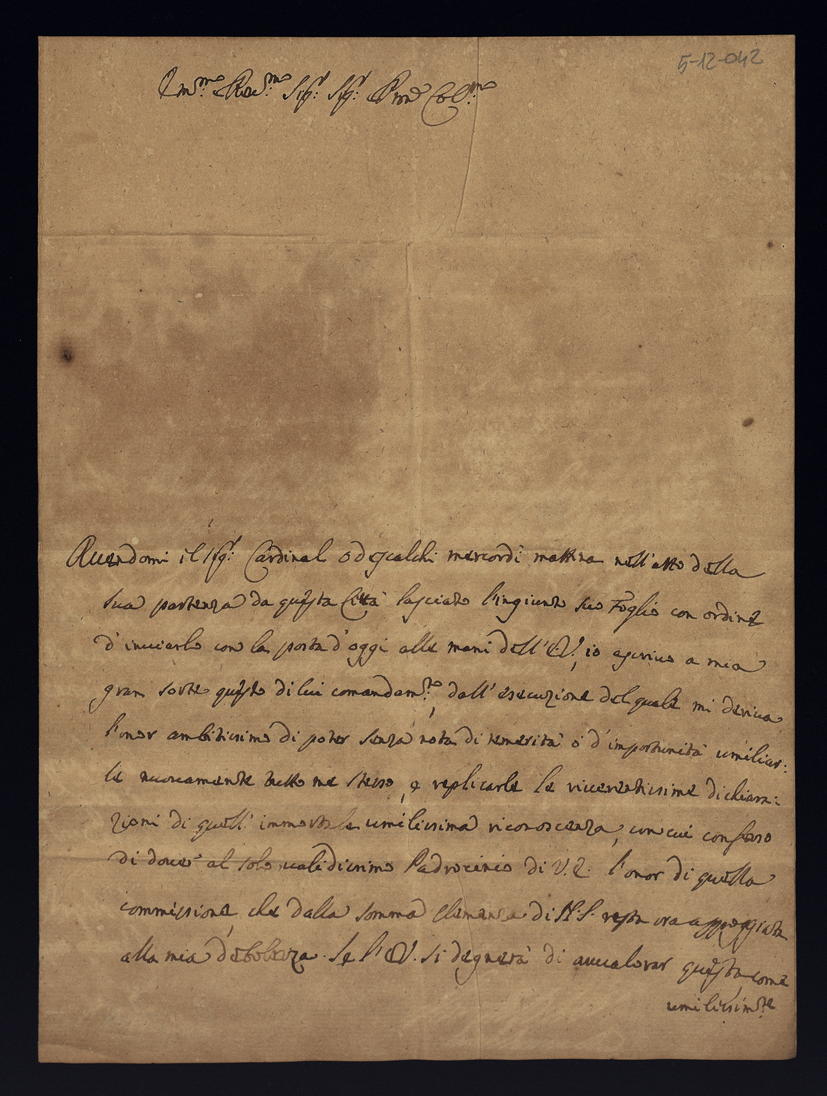 5-12-042
Ill.mo e Rev.mo Sig.r Sig.r P.ron Col.mo
Avendomi il Sig.r Cardinal Odescalchi mercordì mattina nell'atto della
sua partenza da questa Città lasciato l'ingiunto suo Foglio con ordine
d'inviarlo con la posta d'oggi alle mani dell'E.V., io ascrivo a mia
gran sorte questo di lui comandam.to, dall'esecuzione del quale mi deriva
l'onor ambitissimo di poter senza nota di temerità o d'importunità umiliar:
le nuovamente tutto me stesso, e replicarle le riverentissime dichiara:
zioni di quell'immortale umilissima riconoscenza, con cui confesso
di dover al solo validissimo Padrocinio di V.E. l'onor di questa
commissione che dalla somma clemenza di N.S. resta ora appoggiata
alla mia debolezza. Se l'E.V. si degnerà di avvalorar questa come
umilissim.te